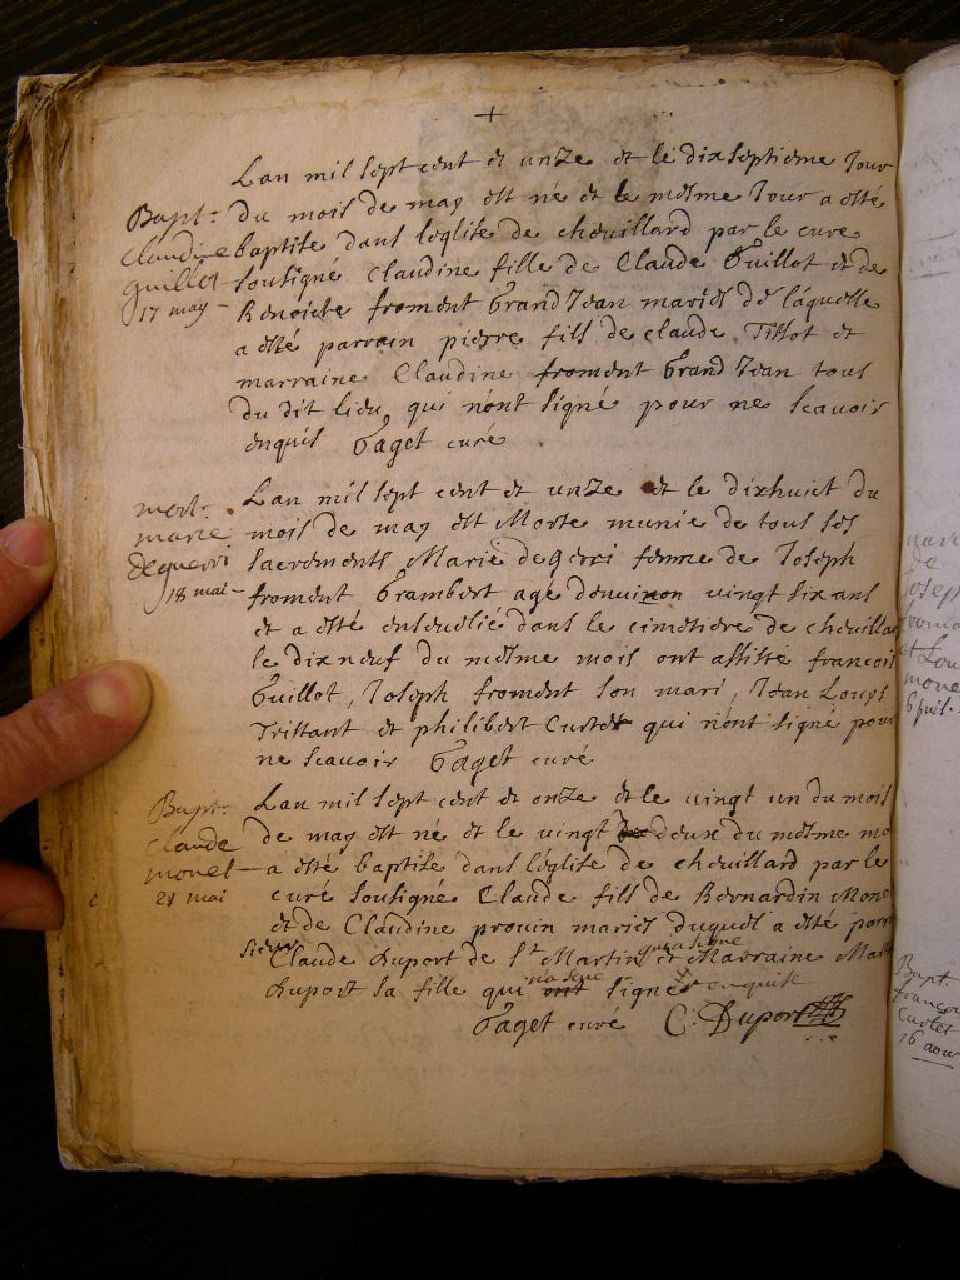 +
Lan mil sept cent et unze et le dixseptieme Jour
Bapt:
Claudine
guillot
17 may
du mois de may est né et le mesme Jour a esté
baptise dans leglise de cheuillard par le cure
sousigné Claudine fille de Claude Guillot et de
Benoiste froment Grand Jean mariés de laquelle
a esté parrain pierre fils de claude Tissot et
marraine Claudine froment Grand Jean tous
du dit lieu qui n'ont signé pour ne scauoir
enquis Gaget curé
mort:
marie
deguerri
18 mai
Lan mil sept cent et unze et le dixhuict du
mois de may est Morte munie de tous ses
sacrements Marie degerri femme de Joseph
froment Grambert agé denuiron vingt six ans
et a esté enseuelié dans le cimetiere de cheuillar
le dixneuf du mesme mois ont assisté francois
Guillot, Joseph froment son mari, Jean Louys
Trissant et philibert Curtet qui n'ont signé pour
ne scauoir Gaget curé
Bapt:
Claude
monet
21 mai
Lan mil sept cent et onze et le vingt un du mois
de may est né et le vingt deux du mesme mo
a esté baptise dans léglise de cheuillard par le
curé sousigné Claude fils de Bernardin Mone
et de Claudine prouin mariés duquel a esté parr
sieur Claude Duport de St Martin qui a signe et Marraine
Duport sa fille qui ont signé enquise
Gaget curé C: Duport
de
Joseph
mone
6 juil.
Bapt.
francoi
Curtet
16 aou